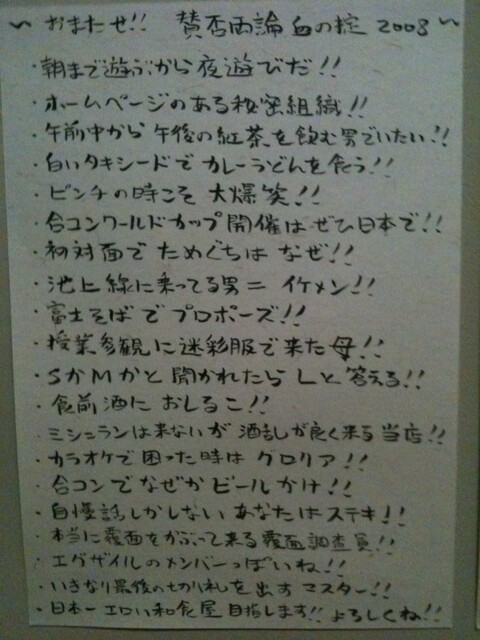 〜 おまたせ!! 賛否両論 血の掟 2008 〜
・朝まで遊ぶから夜遊びだ!!
・ホームページのある秘密組織!!
・午前中から午後の紅茶を飲む男でいたい!!
・白いタキシードでカレーうどんを食う!!
・ピンチの時こそ 大爆笑!!
・合コンワールドカップ開催はぜひ日本で!!
・初対面で ためぐちは なぜ!!
・池上線に乗ってる男=イケメン!!
・富士そばでプロポーズ!!
・授業参観に迷彩服で来た母!!
・SかMかと聞かれたらLと答える!!
・食前酒に おしるこ!!
・ミシュランは来ないが 酒乱が良く来る 当店!!
・カラオケで困った時は グロリア!!
・合コンでなぜかビールかけ!!
・自慢話しかしない あなたは ステキ!!
・本当に覆面をかぶって来る覆面調査員!!
・エグザイルのメンバーっぽいね!!
・いきなり最後の切り札を出す マスター!!
・日本一エロい和食屋 目指します!! よろしくね!!